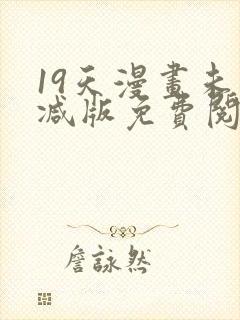 19天漫畫未
减版免費閱
詹詠然